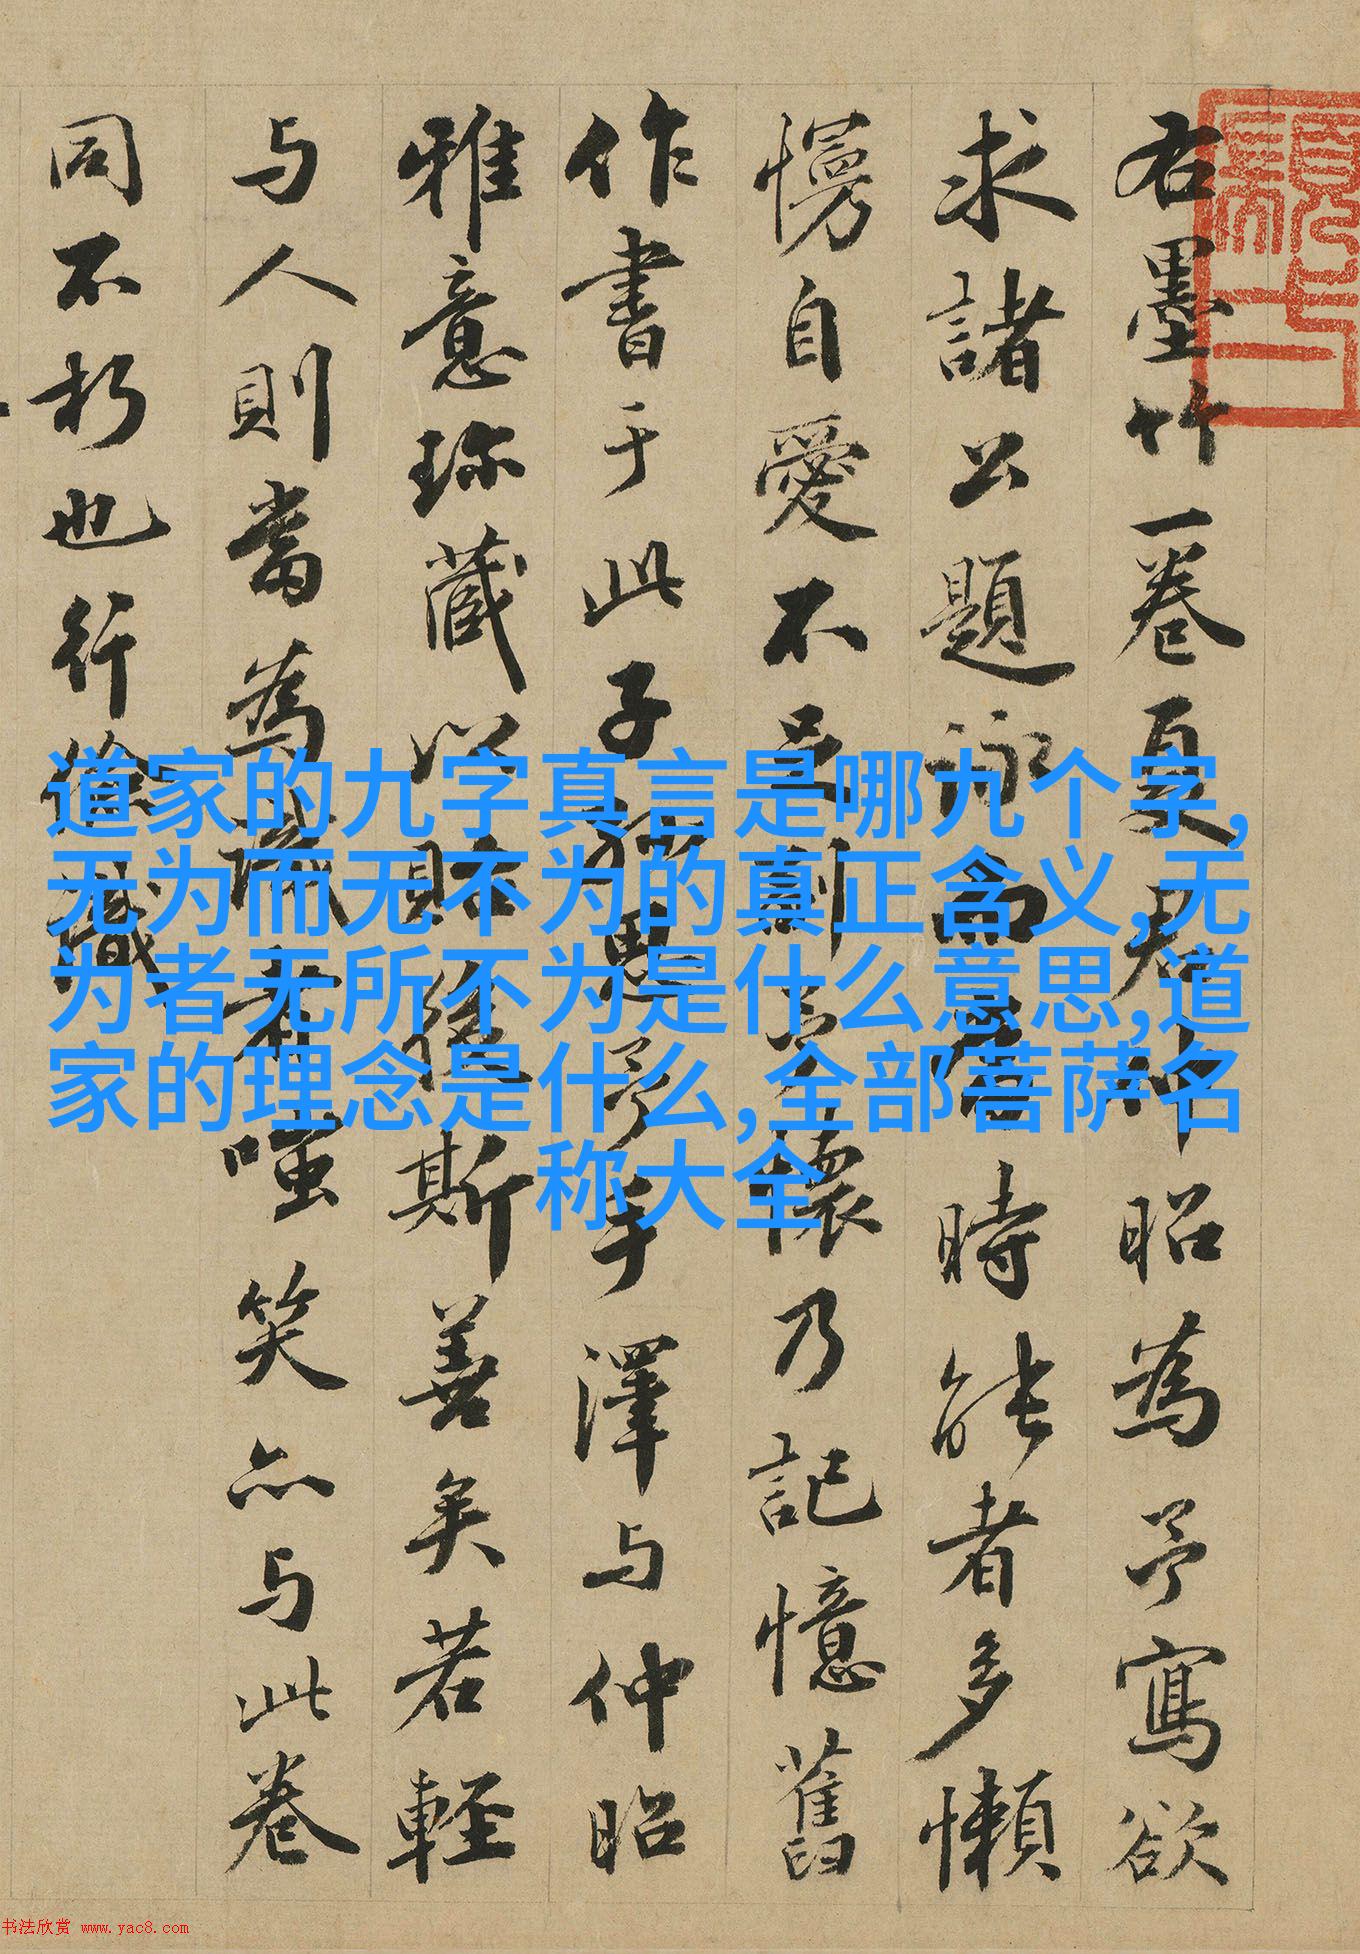 右墨竹一卷夏君仲昭為予寫欲
求諸公題詠而當時能者多懶
慢自愛不副懷乃記憶舊
作書于此子孫思予手澤与仲昭
雅意珍藏以貽後斯善矣若輕
与人則當為識者嗤笑亦与此卷
同不朽也行儉識
道家的九字真言是哪九个字,
无为而无不为的真正含义,无
为者无所不为是什么意思,道
家的理念是什么,全部菩萨名
称大全
书法欣赏 www.yac8.com